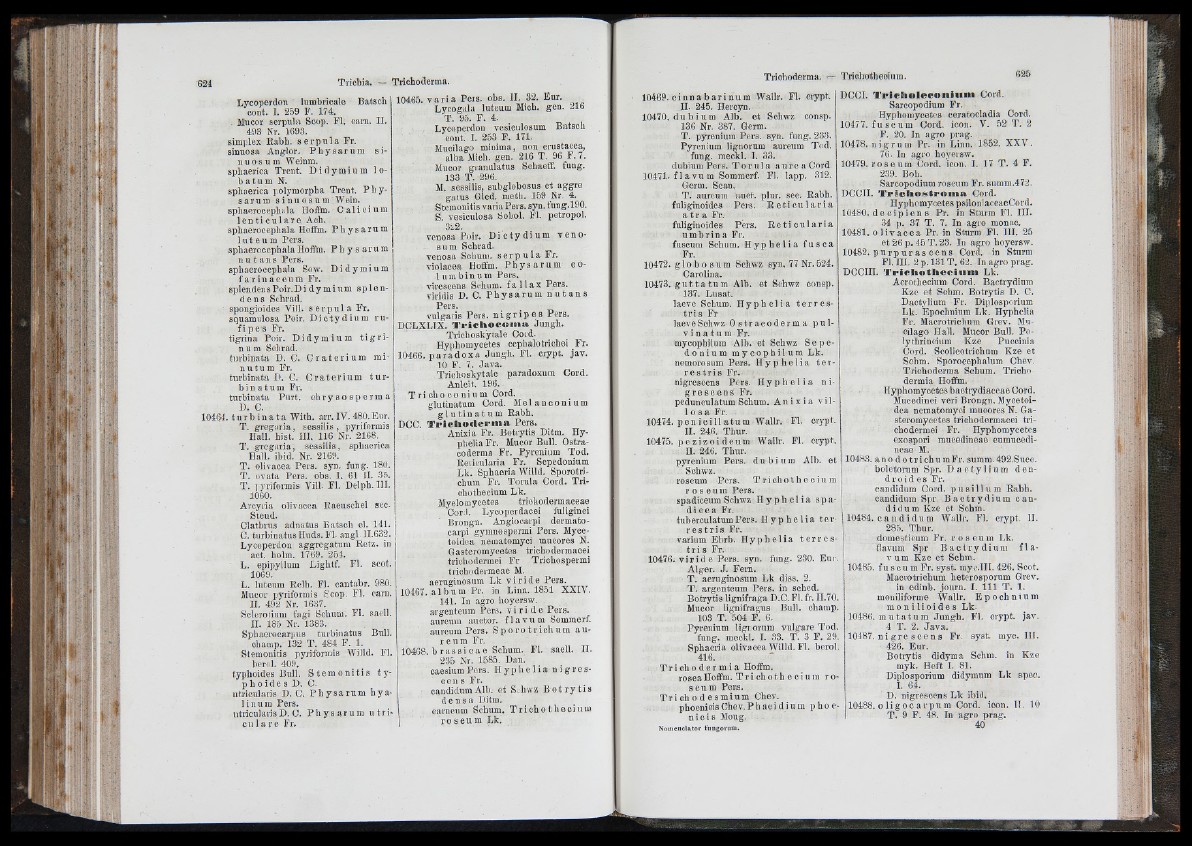 624 Trichia. — Trichoderma.
Lycoperdon lumbricale Batsch
cont. I. 259 F. 174.
Mucor serpula Scop. Fl. carn. II.
493 Nr. 1693.
simplex Rabh. serpula Fr.
sinuosa Anglor. Physarum si-
nuosum Weinm.
sphaerica Trent. Didymium lo-
batum N.
sphaerica polymorpha Trent. Phy-
sarum sinuosum Wein.
sphaerocephala Hoffm. Calicium
lenticulare Ach.
sphaerocephala Hoffm. Physarum
luteum Pers.
sphaerocephala Hoffm. Physarum
nutans Pers.
sphaerocephala Sow. Didymium
farinaceum Fr.
splendens Poir. Didymium splen-
dens Schrad.
spongioides Vill. serpula Fr.
squamulosa Poir. Dictydium ru-
fipes Fr.
tigrina Poir. Didymium tigri-
num Schrad.
turbinata D. C. Craterium mi-
nutum Fr.
turbinata D. C. Craterium tur-
binatum Fr.
turbinata Purt. chrysosperma
D. C.
10464. turbinata With. arr. IV. 480. Eur.
T. gregaria, sessilis, pyriformis
Hall. hist. III. 116 Nr. 2168.
T. gregaria, sessilis, sphaerica
Hall. ibid. Nr. 2169.
T. olivacea Pers. syn. fung. 180.
T. ovata Pers. obs. I. 61 II. 35.
T. pyriformis Vill. Fl. Delph. III.
1060.
Arcyria olivacea Raeuschel sec.
Steud.
Clathrus adnatus Batsch el. 141.
C. turbinatus Huds. Fl. angl II. 632.
Lycoperdon aggregatum Retz. in
act. holm. 1769. 254.
L. epipyllum Lightf. Fl. scot.
1069.
L. luteum Relh. Fl. cantabr. 980.
Mucor pyriformis Scop. Fl. carn.
II. 492 Nr. 1637.
Sclerotium fagi Schum. Fl. saell.
II. 185 Nr. 1383.
Sphaerocarpus turbinatus Bull.
champ. 132 T. 484 F. 1.
Stemonitis pyriformis Willd. Fl.
berol. 409.
typhoides Bull. Stemonitis ty-
phoides D. C.
utricularis D. C. Physarum hya-
linum Pers.
utricularis D. C. Physarum utri-
culare Fr.
10465. varia Pers. obs. II. 32. Eur.
Lycogala luteum Mich. gen. 216
T. 95. F. 4.
Lycoperdon vesiculosum Batsch
cont. I. 253 F. 171.
Mucilago minima, non crustacea,
alba Mich. gen. 216 T. 96 F. 7.
Mucor granulatus Schaeff. fung.
133 T. 296.
M. sessilis, subglobosus et aggre
gatus Gled. meth. 159 Nr. 4.
Stemonitis varia Pers. syn. fung. 190.
S. vesiculosa Sobol. Fl. petropol.
312.
venosa Poir. Dictydium veno-
sum Schrad.
venosa Schum. serpula Fr.
violacea Hoffm. Physarum co-
lumbinum Pers.
virescens Schum. fallax Pers.
viridis D. C. Physarum nutans
Pers.
vulgaris Pers. nigripes Pers.
DCLXLIX. Trichocoma Jungh.
Trichoskytale Cord.
Hyphomycetes cephalotrichei Fr.
10466. paradoxa Jungh. Fl. crypt. jav.
10 F. 7. Java.
Trichoskytale paradoxum Cord.
Anleit. 196.
Trichoconium Cord.
glutinatum Cord. Melanconium
glutinatum Rabh.
DCC. Trichoderma Pers.
Anixia Fr. Botrytis Ditm. Hy-
phelia Fr. Mucor Bull. Ostra-
coderma Fr. Pyrenium Tod.
Reticularia Fr. Sepedonium
Lk. Sphaeria Willd. Sporotri-
chum Fr. Torula Cord. Tri-
chothecium Lk.
Myelomycetes trichodermaceae
Cord. Lycoperdacei fuliginei
Brongn. Angiocarpi dermato-
carpi gymnospermi Pers. Myce-
toidea nematomyci mucores N.
Gasteromycetes trichodermacei
trichodermei Fr Trichospermi
trichodermeae M.
aeruginosum Lk viride Pers.
10467. album Pr. in Linn. 1851 XXIV.
141. In agro hoyersw.
argenteum Pers. viride Pers.
aureum auctor. flavum Sommerf.
aureum Pers. Sporotrichum au-
reum Fr.
10468. brassicae Schum. Fl. saell. II.
235 Nr. 1585. Dan.
caesium Pers. Hyphelia nigres-
cens Fr.
candidum Alb. et S.hwz Botrytis
densa Ditm.
carneum Schum. Trichothecium
roseum Lk.
Trichoderma. — Trichothecium. 625
10469. cinnabarinum Wallr. Fl. crypt.
II. 245. Hercyn.
10470. dubium Alb. et Schwz consp.
136 Nr. 387. Germ.
T. pyrenium Pers. syn. fung. 233.
Pyrenium lignorum aureum Tod.
fung. meckl. I. 33.
dubium Pers. Torula aurea Cord
10471. flavum Sommerf. Fl. lapp. 312.
Germ. Scan.
T. aureum auct. plur. sec. Rabh.
foliginoides Pers. Reticularia
atra Fr.
fuliginoides Pers. Reticularia
umbrina Fr.
fuscum Schum. Hyphelia fusca
Fr.
10472. globosum Schwz syn. 77 Nr. 524.
Carolina.
10473. guttatum Alb. et Schwz consp.
137. Lusat.
laeve Schum. Hyphelia terres-
tris Fr
laeve Schwz Ostracoderma pul-
vinatum Fr.
mycophilum Alb. et Schwz Sepe-
donium mycophilum Lk.
nemorosum Pers. Hyphelia ter-
restris Fr.
nigrescens Pers. Hyphelia ni-
grescens Fr.
pedunculatum Schum. Anixia vil-
losa Fr
10474. penicillatum Wallr. Fl. crypt.
II. 246. Thur.
10475. pezizoideum Wallr. Fl. crypt.
II. 246. Thur.
pyrenium Pers. dubium Alb. et
Schwz.
roseum Pers. Trichothecium
roseum Pers.
spadiceum Schwz Hyphelia spa-
dicea Fr
tuberculatum Pers. Hyphelia ter-
restris Fr.
varium Ehrb. Hyphelia terres-
tris Fr.
10476. viride Pers. syn. fung. 230. Eur.
Alger. J. Fern.
T. aeruginosum Lk diss. 2.
T. argenteum Pers. in sched.
Botrytis lignifraga D.C. Fl. fr. II.70.
Mucor lignifragus Bull. champ.
103 T. 504 F. 6.
Pyrenium lignorum vulgare Tod.
fung. meckl. I. 33. T. 3 F. 29.
Sphaeria olivacea Willd. Fl. berol.
416.
Trichodermia Hoffm.
rosea Hoffm. Trichothecium ro-
seum Pers.
Trichodesmium Chev.
phoenicis Chev. Phacidium phoe-
nicis Moug.
Nomenclator fungorum.
DCCI. Tricholeconium Cord.
Sarcopodium Fr.
Hyphomycetes ceratocladia Cord.
10477. fuscum Cord. icon. V. 52 T. 2
F. 20. In agro prag.
10478. nigrum Pr. in Linn. 1852. XXV.
76. In agro hoyersw.
10479. roseum Cord. icon. I. 17 T. 4 F.
239. Boh.
Sarcopodium roseum Fr. summ. 472.
DCCII. Trichostroma Cord.
Hyphomycetes psiloniaceae Cord.
10480. decipiens Pr. in Sturm Fl. III.
34 p. 37 T. 7. In agro monac.
10481. olivacea Pr. in Sturm Fl. III. 25
et 26 p. 45 T. 23. In agro hoyersw.
10482. purpurascens Cord. in Sturm
Fl. III. 2 p. 131 T. 62. In agro prag.
DCCIII. Trichothecium Lk.
Acrothecium Cord. Bactrydium
Kze et Schm. Botrytis D. C.
Dactylium Fr. Diplosporium
Lk. Epochnium Lk. Hyphelia
Fr. Macrotrichum Grev. Mu-
cilago Hall. Mucor Bull. Po-
lythrincium Kze Puccinia
Cord. Scolicotrichum Kze et
Schm. Sporocephalum Chev
Trichoderma Schum. Tricho
dermia Hoffm.
Hyphomycetes bactrydiaceae Cord.
Mucedinei veri Brongn. Mycetoi-
dea nematomyci mucores N. Ga-
steromycetes trichodermacei tri-
chodermei Fr. Hyphomycetes
exospori mucedineae eumucedi-
neae M.
10483. anodotrichum Fr. summ. 492. Suec.
boletorum Spr. Dactylium den-
droides Fr.
candidum Cord. pusillum Rabh.
candidum Spr. Bactrydium can-
didum Kze et Schm.
10484. candidum Wallr. Fl. crypt. II.
285. Thur.
domesticum Fr. roseum Lk.
flavum Spr Bactrydium fla-
vum Kze et Schm.
10485. fuscum Fr. syst. myc. III. 426. Scot.
Macrotrichum heterosporum Grev.
in edinb. journ. I. 111 T. 1.
moniliforme Wallr. Epochnium
monilioides Lk.
10486. mutatum Jungh. Fl. crypt. jav.
4 T. 2. Java.
10487. nigrescens Fr. syst. myc. III.
426. Eur.
Botrytis didyma Schm. in Kze
myk. Heft I. 81.
Diplosporium didymum Lk spec.
I. 64.
D. nigrescens Lk ibid.
10488. oligocarpum Cord. icon. II. 10
T. 9 F. 48. In agro prag.
40